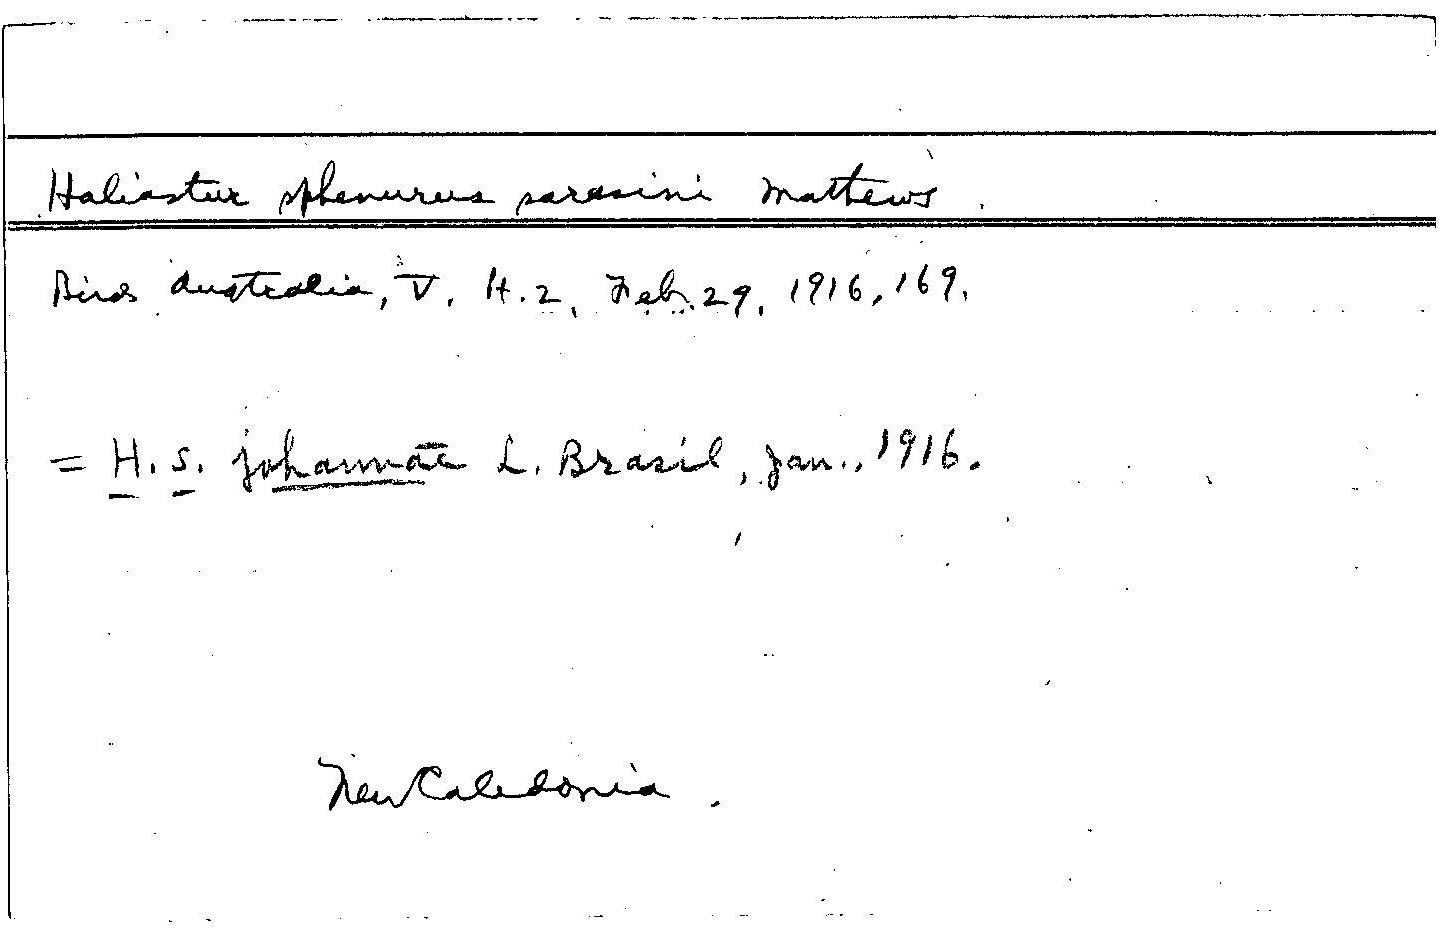 Haliastur sphenurus sarasini Mathews.
Birds Australia, V. H.2, Feb. 29, 1916, 169.
= H. s. johannae L. Brasil, Jan., 1916.
New Caledonia.